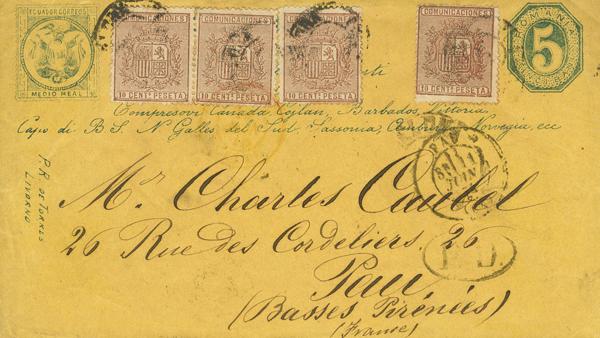 ECUADOR CORREOS
MEDIO REAL
COMUNICACIONES
10 CENT.s PESETA
COMUNICACIONES
10 CENT.s PESETA
COMUNICACIONES
10 CENT.s PESETA
COMUNICACIONES
10 CENT.s PESETA
5
Compresovi Canada, Ceilan, Barbados, Vittoria
Capo di B. S. N. Galles del Sud, Sassonia, Amburgo, Norvegia, ecc
P.R. DE TORRES
LIVORNO
Mr. Charles Caubel
26 Rue des Cordeliers 26
Pau
(Basses Pirénées)
(France)
PAU
JUIN
P.D.